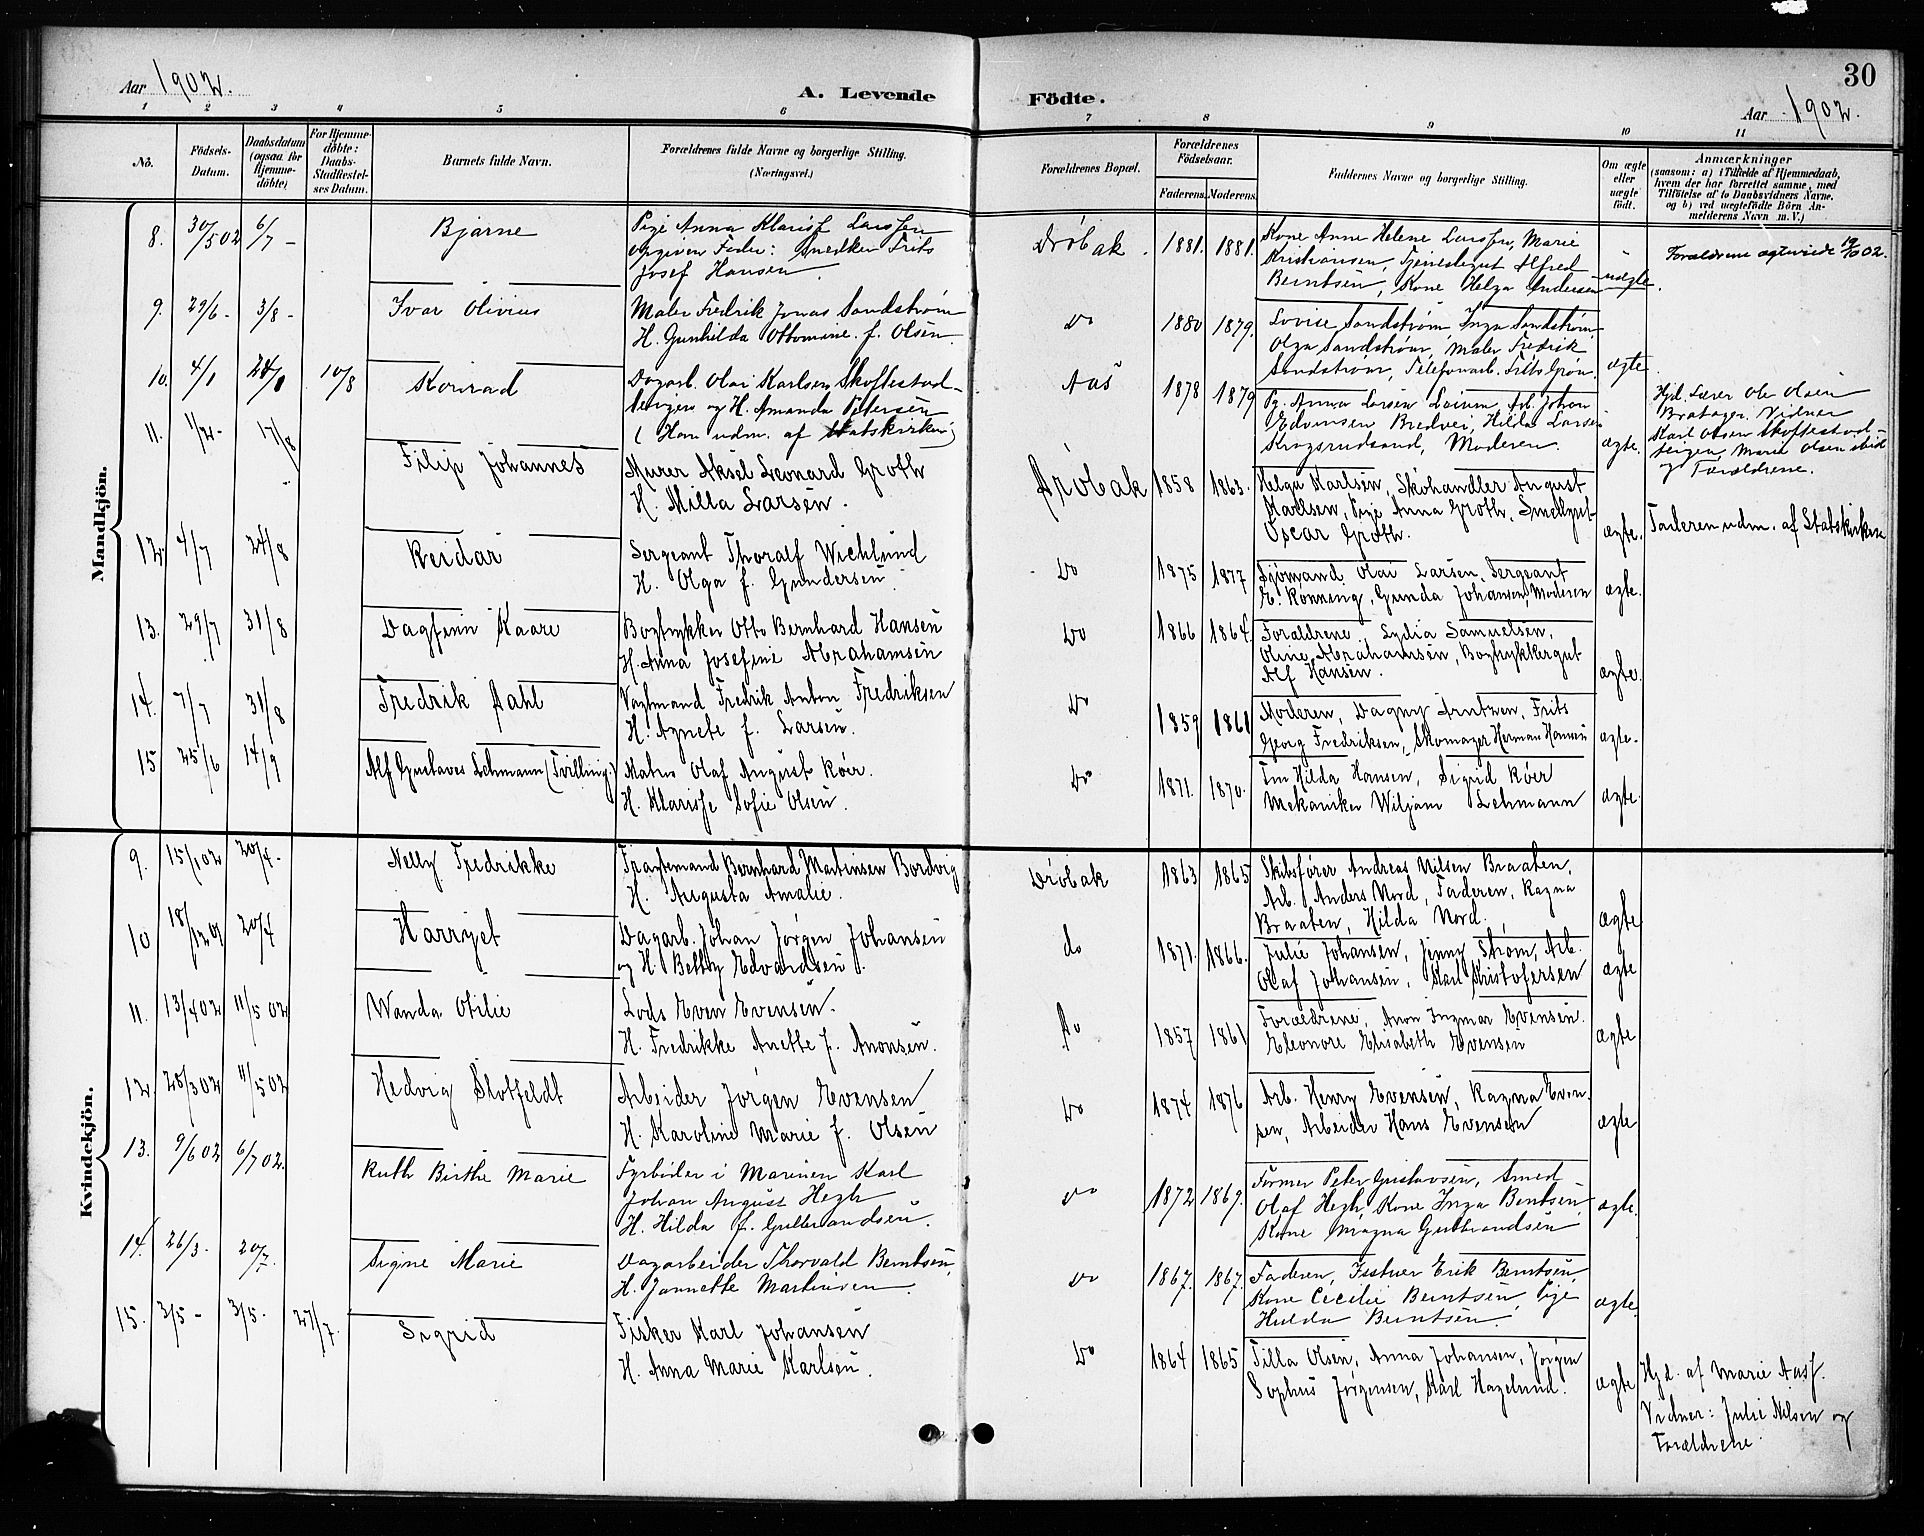 30
Aar 1902.
A. Levende Födte.
Aar 1902.
1 2 3 4 5 6 7 8 9 10 11
No.
Födsels-
Datum.
Daabsdatum
(ogsaa for
Hjemme-
döbte)
For Hjemme-
döbte:
Daabs-
Stadfæstel-
ses Datum.
Barnets fulde Navn.
Forældrenes fulde Navne og borgerlige Stilling.
(Næringsvei.)
Forældrenes Bopæl.
Forældrenes
Födselsaar.
Faderens. Moderens.
Faddernes Navne og borgerlige Stilling.
Om ægte
eller
uægte
födt.
Anmærkninger
(saasom: a) i Tilfælde af Hjemmedaab,
hvem der har forrettet samme, med
Tilföielse af to Daabsvidners Navne.
og b) ved uægtefödte Börn An-
melderens Navn m. V.)
Mandkjön.
8. 30/5 02 6/7 - Bjarne
Pige Anna Klarisf Larssen
opgiven Fader: Snedker Frits
Josef Hansen
Drøbak. 1881. 1881.
Kone Anne Helene Larssen, Marie
Kristiansen, Tjenestegut Alfred
Berntsen, Kone Helga Andersen
uægte.
Forældrene ægteviede 19/10 02.
9. 29/6 - 3/8 - Ivar Olivius
Maler Fredrik Jonas Sandstrøm
H. Gunhilda Ottomine f. Olsen.
Do 1880 1879.
Lovise Sandstrøm Inga Sandstrøm
Olga Sandstrøm, Maler Fredrik
Sandstrøm, Telefonarb. Frits Grøn.
ægte.
10. 4/1 24/8 10/8 Konrad
Dagarb. Olai Karlsen Skoftestad-
teigen og H. Amanda Petersen
(Han udm. af Statskirken)
Aas 1878 1879
Pg. Anna Larsen Arb. Johan
Edvinsen Bredvei, Hilda Larsen
Krogsrudsand, Moderen.
ægte.
Hjd. Lærer Ole Olsen
Bratager. Vidner
Karl Olsen Skoftestad-
teigen, Marie Olsen ibid
og Forældrene.
11. 1/2 - 17/8 Filip Johannes
Murer Aksel Leonard Groth
H. Milla Larsen.
Drøbak 1858 1863.
Helga Karlsen, Skohandler August
Karlsen, Pige Anna Groth, Smedgut
Oscar Groth.
ægte.
Faderen udm. af Statskirken
12. 4/7 24/8 Reidar
Sergeant Thoralf Wichlund
H. Olga f. Gundersen.
Do 1875 1877
Sjømand Olai Larsen, Sergeant
E. Rønning, Gunda Johansen, Moderen
ægte.
13. 29/7 31/8 Dagfinn Kaare
Bogtrykker Otto Bernhard Hansen
H. Anna Josefine Abrahamsen
Do 1866 1864.
Forældrene, Lydia Samuelsen,
Oline Abrahamsen, Bogtrykkergut
Alf Hansen.
ægte.
14. 7/7 31/8 Fredrik Dahl
Vagtmand Fredrik Anton Fredriksen
H. Agnete f. Larsen.
Do 1859 1861
Moderen, Dagny Arntzen, Frits
Georg Fredriksen, Skomager Herman Hansen
ægte.
15 25/6 14/9 Alf Gustaves Lehmann (Tvilling.)
Matros Olaf August Køer.
H. Klarisse Sofie Olsen.
Do 1871. 1870.
Tm Hilda Hansen, Sigrid Køer
Mekaniker Wiljam Lehmann
ægte.
Kvindekjön.
9. 15/1 02 20/4 - Nelly Fredrikke
Fragtemand Bernhard Martinsen Bordvig
H. Augusta Amalie.
Drøbak 1863 1865
Skibsfører Andreas Nilsen Braaten,
Arb. Anders Nord, Faderen, Ragna
Braaten, Hilda Nord.
ægte
10 18/12 01 20/4 Harryet
Dagarb. Johan Jørgen Johansen
og H. Betthy Edvardsen.
do 1871. 1866.
Julie Johansen, Jenny Strøm, Arb.
Olaf Johansen, Karl Kristofersen
ægte
11. 13/4 02 11/5 02 Wanda Otilie
Lods Even Evensen.
H. Fredrikke Anette f. Anonsen.
Do 1857 1861
Forældrene, Anon Ingmar Evensen.
Eleonore Elisabeth Evensen
ægte
12. 28/3 02 11/5 02 Hedvig Slotfeldt
Arbeider Jørgen Evensen
H. Karoline Marie f. Olsen
Do 1874 1876
Arb. Henry Evensen, Ragna Even-
sen, Arbeider Hans Evensen
ægte
13. 9/6 02 6/7 02. Ruth Birthe Marie
Fyrbøder i Marinen Karl
Johan August Hegh
H. Hilda f. Gulbrandsen.
Do 1872 1869.
Former Peter Gustavsen, Smed
Olaf Hegh, Kone Inga Berntsen
Kone Magna Gulbrandsen
ægte.
14. 26/3. 20/7. Signe Marie
Dagarbeider Thorvald Berntsen,
H. Jannette Martinsen.
Do 1867. 1867.
Faderen, Erik Berntsen,
Kone Cecilie Berntsen, Pige
Hulda Berntsen.
ægte.
15. 3/5 - 3/5. 27/7. Sigrid
Fisker Karl Johansen
H. Anna Marie Karlsen.
Do 1864 1865
Tilla Olsen, Anna Johansen, Jørgen
Sophus Jørgensen, Karl Hagelund.
ægte
Hjd. af Marie Aas.
Vidner: Julie Nilsen og
Forældrene